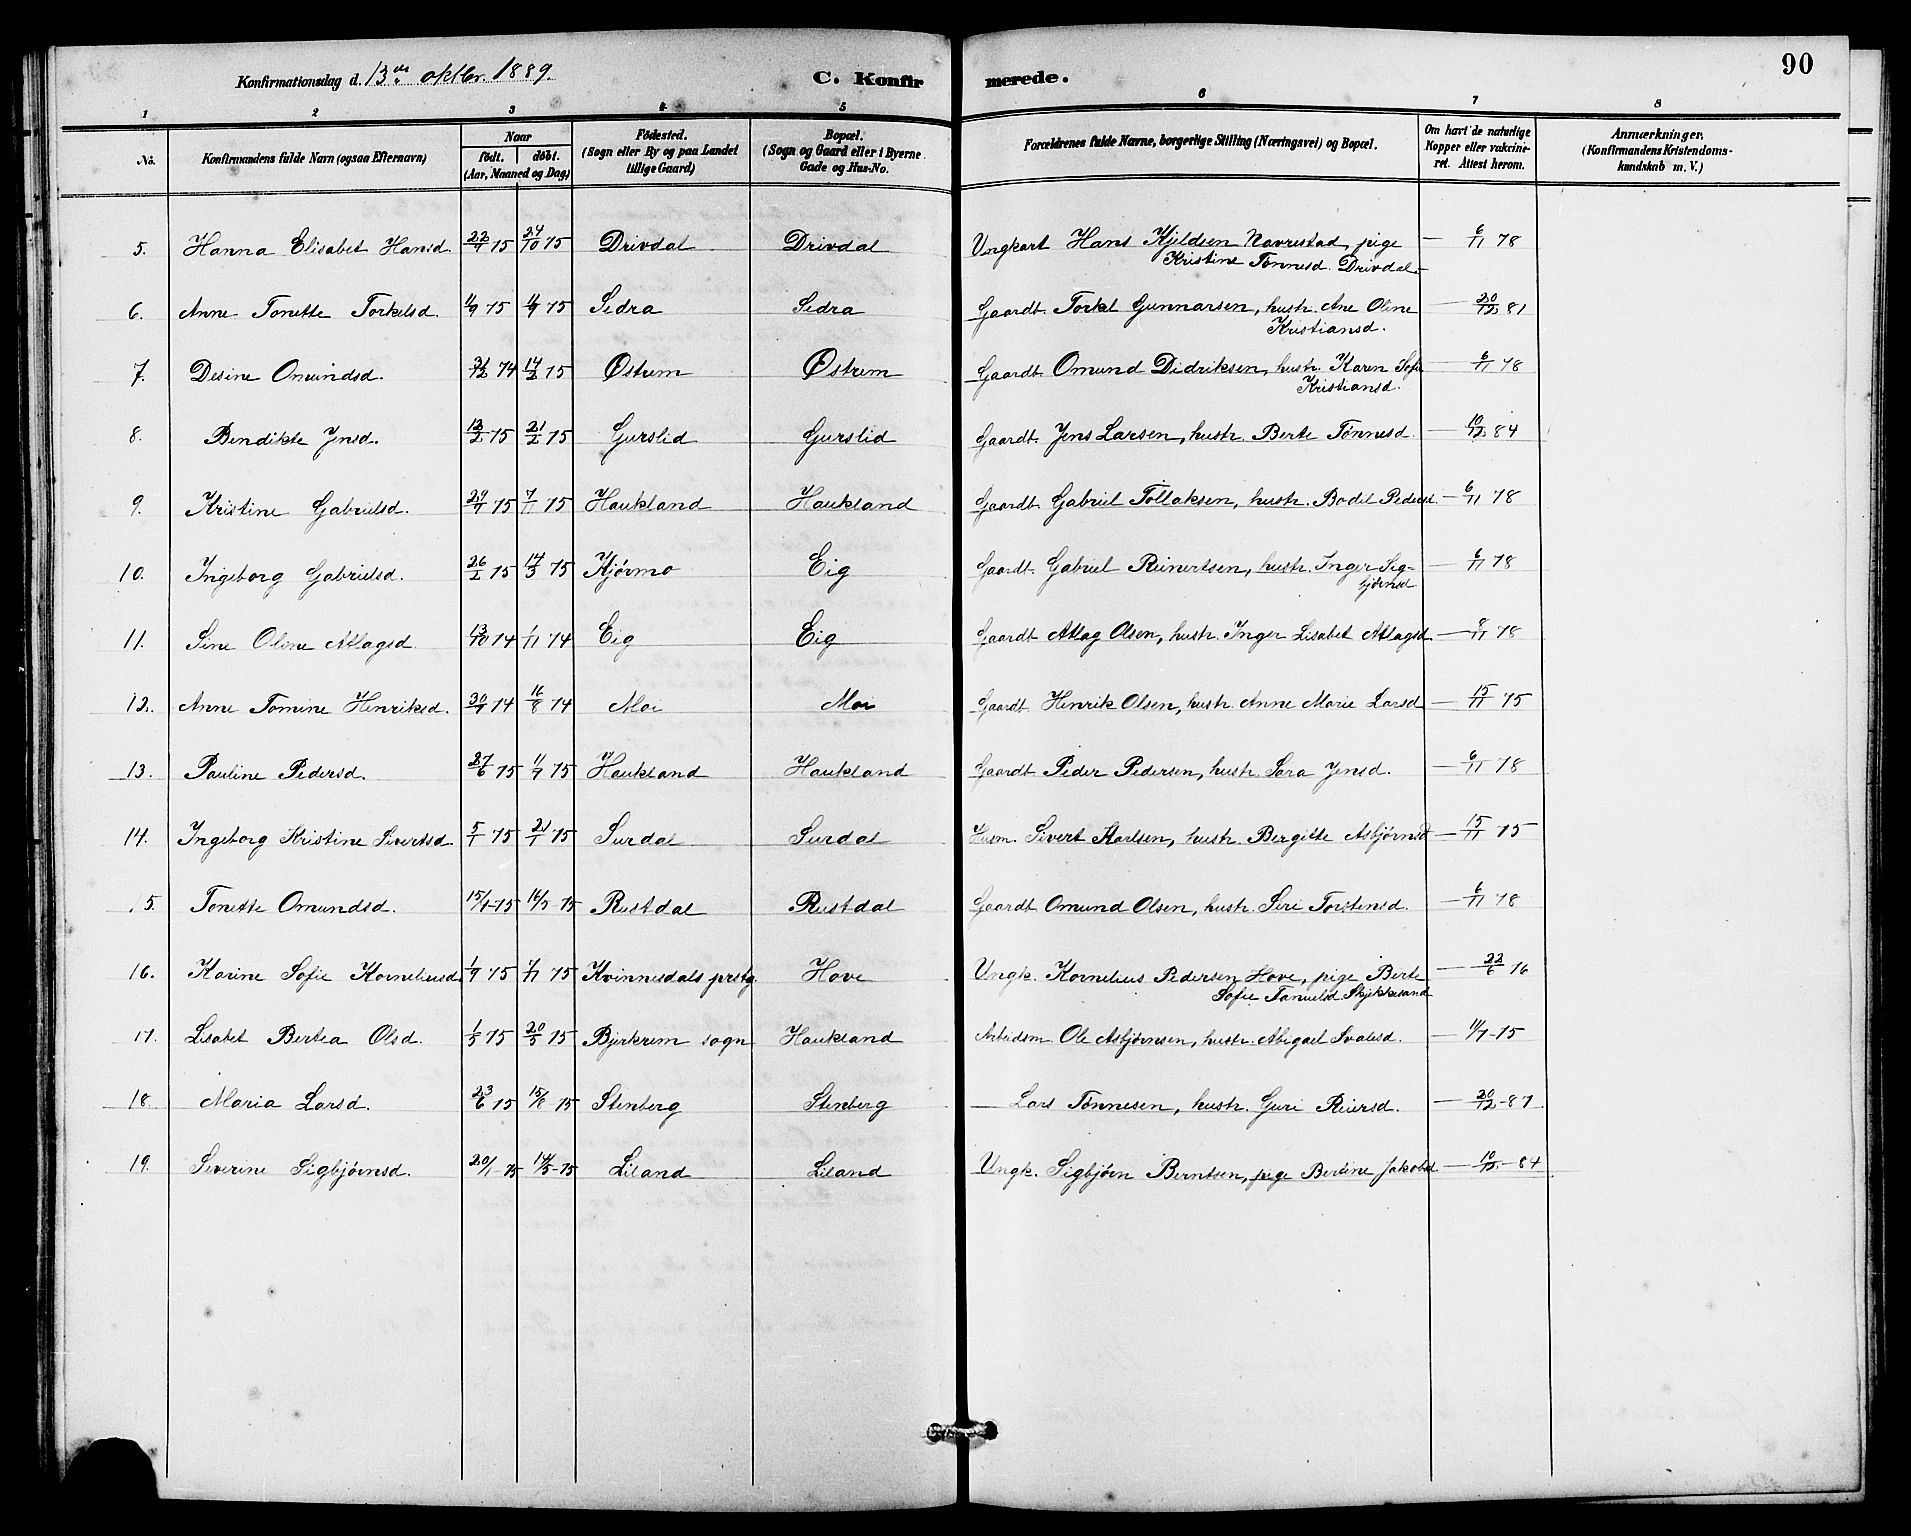 Konfirmationsdag d. 13de oktbr. 1889. C. Konfirmerede. 90
1 2 3 4 5 6 7 8
No. Konfirmandens fulde Navn (ogsaa Efternavn) Naar født. døbt. (Aar, Maaned og Dag) Fødested. (Sogn eller By og paa Landet tillige Gaard) Bopæl. (Sogn og Gaard eller i Byerne Gade og Hus-No. Forældrenes fulde Navne, borgerlige Stilling (Næringsvei) og Bopæl. Om havt de naturlige Kopper eller vakcineret. Attest herom. Anmærkninger. (Konfirmandens Kristendomskundskab m. V.)
5. Hanna Elisabet Hansd. 22/9 75 24/10 75 Drivdal Drivdal Ungkarl Hans Kjeldsen Navrestad, pige — 6/11 78
Kristine Tønnesd. Drivdal
6. Anne Tonette Torkelsd. 75 75 Sedra Sedra Gaardt. Torkel Gunnarsen, hustr. Ane Oline — 20/12 81
Kristiansd.
7. Desine Omundsd. 31/12 74 14/2 75 Østrem Østrem Gaardt. Omund Didriksen, hustr. Karen Sofie — 6/11 78
Kristiansd.
8. Bendikte Jensd. 12/2 75 21/2 75 Gurslid Gurslid Gaardt. Jens Larsen, hustr. Berte Tønnesd. — 10/12 84
9. Kristine Gabrielsd. 75 7/11 75 Haukland Haukland Gaardt. Gabriel Tollaksen, hustr. Bodil Pedersd — 6/11 78
10. Ingeborg Gabrielsd. 26/2 75 14/3 75 Kjørmo Eig Gaardt. Gabriel Reinertsen, hustr. Inger Sig- — 6/11 78
bjørnsd
11. Sine Oline Atlagsd. 13/10 74 1/11 74 Eig Eig Gaardt. Atlag Olsen, hustr. Inger Lisabet Atlagsd — 78
12. Anne Tomine Henriksd. 30/7 74 16/8 74 Moi Moi Gaardt. Henrik Olsen, hustr. Anne Marie Larsd — 15/11 75
13. Pauline Pedersd. 27/6 75 75 Haukland Haukland Gaardt. Peder Pedersen, hustr. Sara Jensd. — 6/11 78
14. Ingeborg Kristine Sivertsd. 5/1 75 21/1 75 Surdal Surdal Husm. Sivert Karlsen, hustr. Bergitte Asbjørnsd — 15/11 75
15. Tonette Omundsd. 75 75 Rustdal Rustdal Gaardt. Omund Olsen, hustr. Siri Torstensd. — 6/11 78
16. Karine Sofie Korneliusd. 75 75 Kvinnesdals prstg. Hove Ungk. Kornelius Pedersen Hove, pige Berte — 22/6 76
Sofie
17. Lisabet Bertea Olsd. 1/5 75 20/5 75 Bjerkrem sogn Haukland Arbeidsm. Ole Asbjørnsen, hustr. Abigael Svalesd. — 75
18. Maria Larsd. 23/6 75 15/8 - 75 Stenberg Stenberg — Lars Tønnesen, hustr. Guri Reiersd. — 20/12 - 81
19. Severine Sigbjørnsd. 20/1 - 75 14/3 - 75 Liland Liland Ungk. Sigbjørn Berntsen, pige Bertine Jakobsd — 10/12 - 84